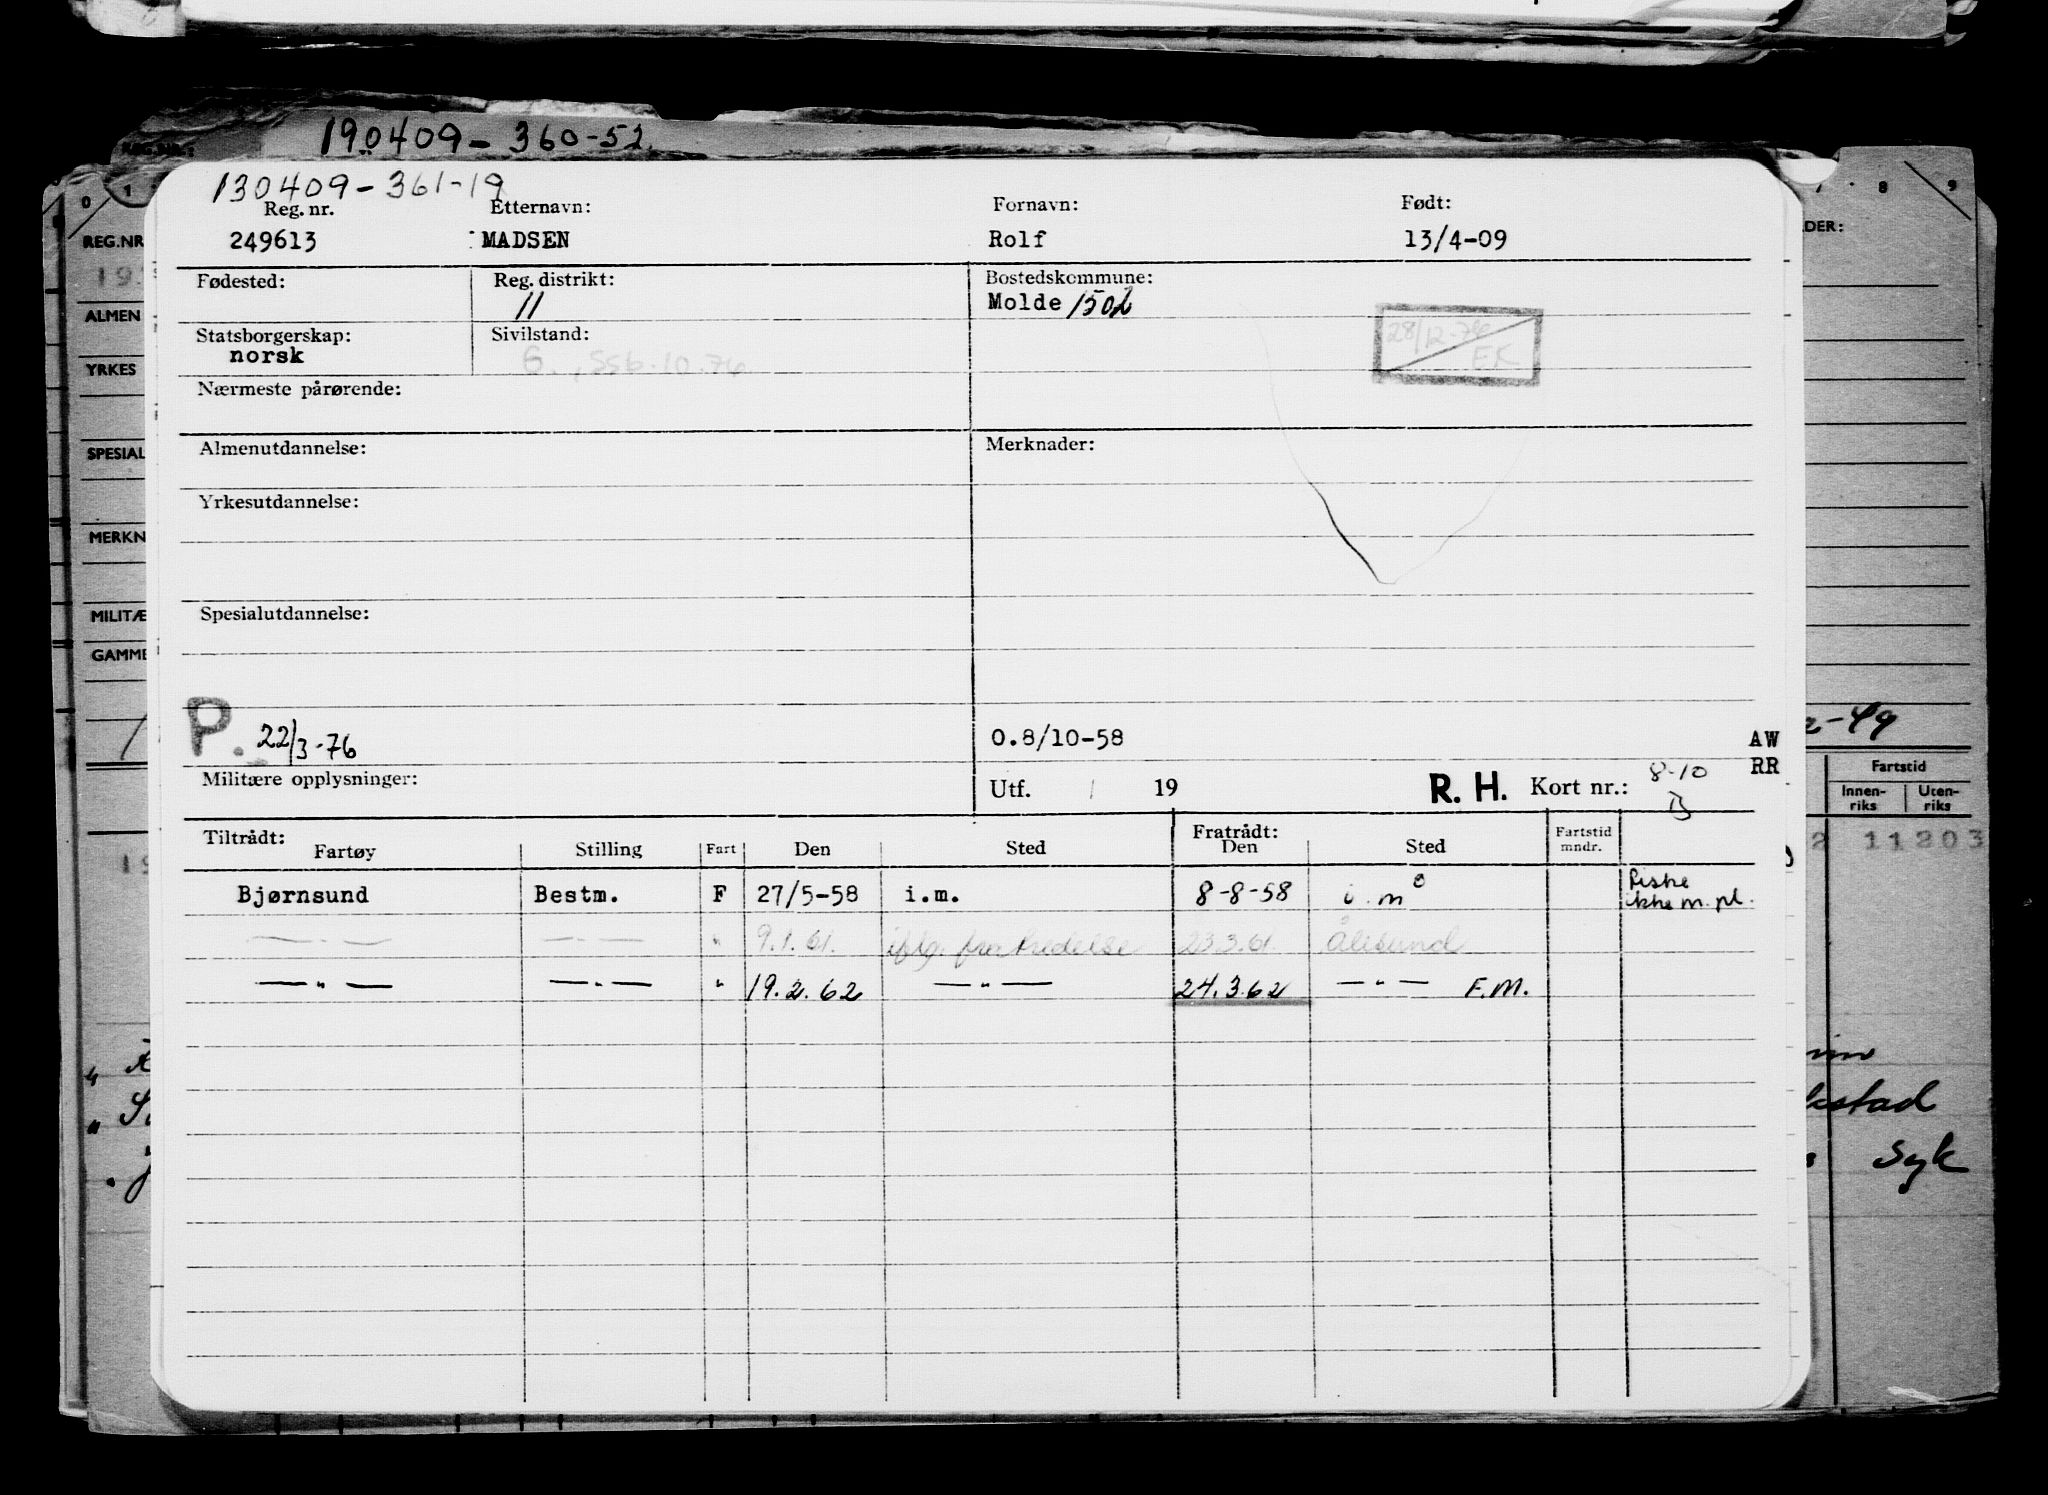 190409-360-52.
REG.NR.
0 1 8 9
130409-361-19
Reg. nr. Etternavn: Fornavn: Født:
249613 MADSEN Rolf 13/4-09
REG.NR
DER:
Fødested: Reg. distrikt: Bostedskommune:
11 Molde 1502
ALMEN
Statsborgerskap: Sivilstand: 28/12-76
norsk G. , SSB.10.76 EK
YRKES
Nærmeste pårørende:
Almenutdannelse: Merknader:
SPESIAL
Yrkesutdannelse:
MERKN
Spesialutdannelse:
MILITÆ
GAMME
P. 22/3-76 0.8/10-58 AW
-49
Militære opplysninger: Utf. / 19 R. H. Kort nr.: 8-10 RR
B
Fartstid
Innen-riks Uten-riks
Tiltrådt: Fratrådt:
Fartøy Stilling Fart Den Sted Den Sted Fartstid mndr.
2 11203
Bjørnsund Bestm. F 27/5-58 i.m. 8-8-58 i.m. Fiske
ikke m. pl.
—"— —"— " 9.1.61. iflg. fratredelse 23.3.61. Ålesund
—"— —"— " 19.2.62 —"— 24.3.62 —"— F.M.
kstad
Syk